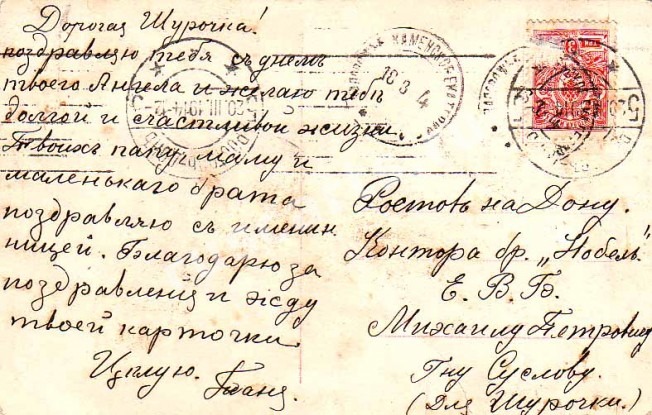 Дорогая Шурочка!
поздравляю тебя съ днемъ
твоего Ангела и желаю тебѣ
долгой и счастливой жизни.
Твоихъ папу, маму и
маленькаго брата
поздравляю съ именин
ницей. Благодарю за
поздравления и жду
твоей карточки.
Цѣлую. Таня.
КАМЕНСКОЕ-ЕКАТ
16 3 4
20.III.1914
Ростовъ на Дону.
Контора бр. „Нобель"
Е. В. Б.
Михаилу Петровичу
Гну Суслову.
(Для Шурочки.)